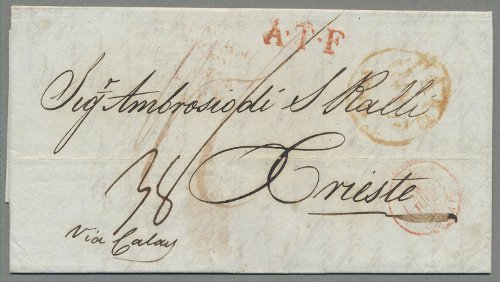 A·T·F
Sigr. Ambrosio di S Ralli
Trieste
38
via Calais